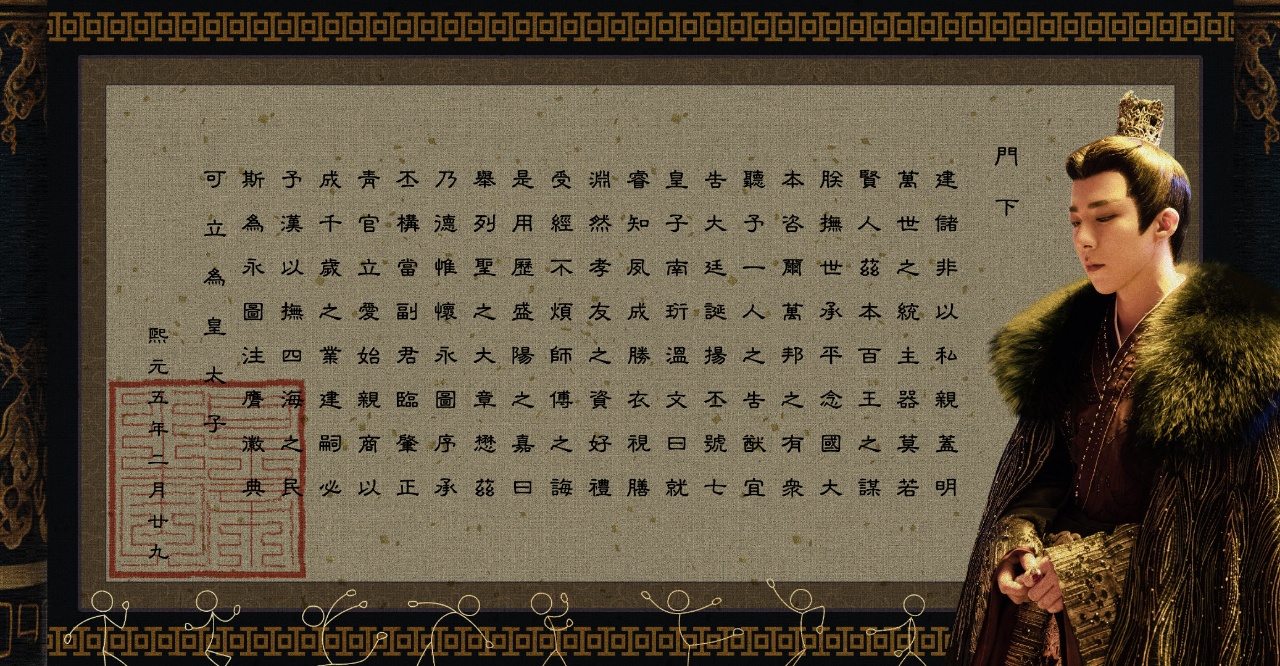 門下
建儲非以私親蓋明
萬世之統主器莫若
賢人茲本百王之謀
朕撫世承平念國大
本咨爾萬邦之有衆
聽予一人之告猷宜
告大廷誕揚丕號七
皇子南珩溫文曰就
睿知夙成勝衣視膳
淵然孝友之資好禮
受經不煩師傅之誨
是用歷盛陽之嘉曰
舉列聖之大章懋茲
乃德惟懷永圖序承
丕構當副君臨肇正
青官立愛始親商以
成千歲之業建嗣必
予漢以撫四海之民
斯為永圖注膺澈典
可立為皇太子
熙元五年二月廿九